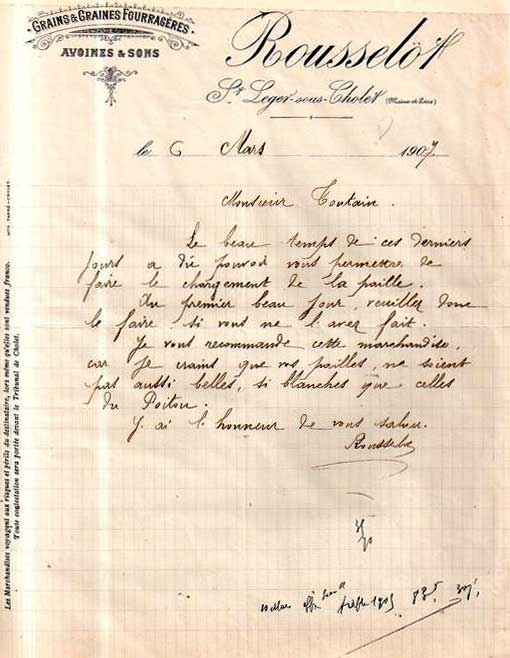 GRAINS & GRAINES FOURRAGÈRES
AVOINES & SONS
Rousselot
St Leger-sous-Cholet (Maine-et-Loire)
le 6 Mars 1907
Monsieur Toutain.
Le beau temps de ces derniers
jours a dû pouvoir vous permettre de
faire le chargement de la paille.
Au premier beau jour, veuillez donc
le faire si vous ne l'avez fait.
Je vous recommande cette marchandise,
car je crains que vos pailles, ne soient
pas aussi belles, si blanches que celles
du Poitou.
J'ai l'honneur de vous saluer.
Rousselot
Les Marchandises voyagent aux risques et périls du destinataire, lors même qu'elles sont vendues franco.
Toute contestation sera portée devant le Tribunal de Cholet.